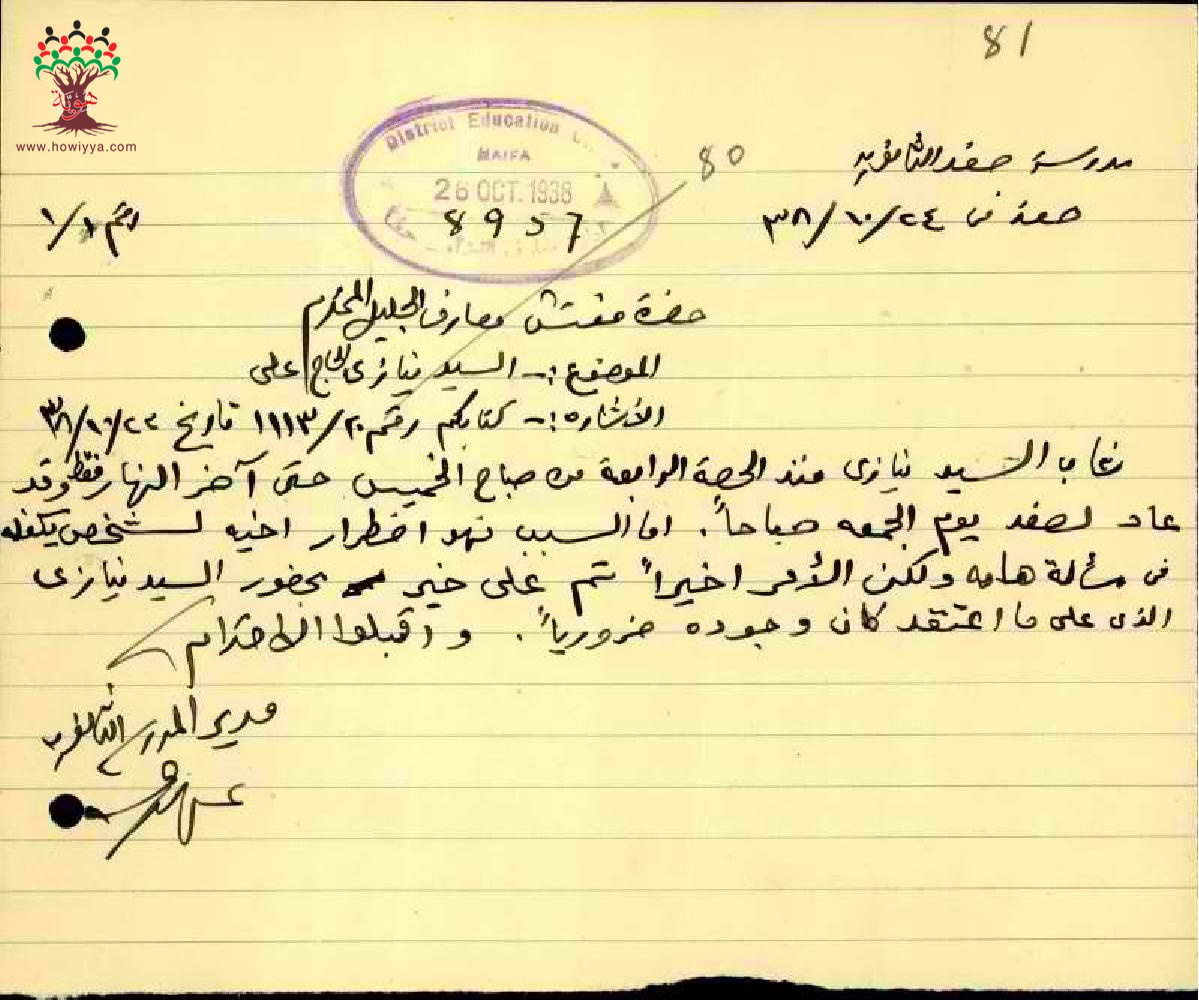 81
هوية
www.howiyya.com
District Education
HAIFA
26 OCT. 1938
8957
80
مدرسة صفد الثانويه
صفد في ٢٤/١٠/٣٨
رقم ١/١
حضرة مفتش معارف الجليل المحترم
الموضوع :- السيد نيازى الحاج على
الاشاره :- كتابكم رقم ١١١٣/٢٠ تاريخ /١٠/٣٨
غاب السيد نيازى منذ الحصة الرابعة من صباح الخميس حتى آخر النهار فقط وقد
عاد لصفد يوم الجمعه صباحاً. اما السبب فهو اضطرار اخيه لشخص يكفله
في مسألة هامه ولكن الأمر اخيراً تم على خير بحضور السيد نيازى
الذى على ما اعتقد كان وجوده ضرورياً. واقبلوا الاحترام
مدير المدرسة الثانويه